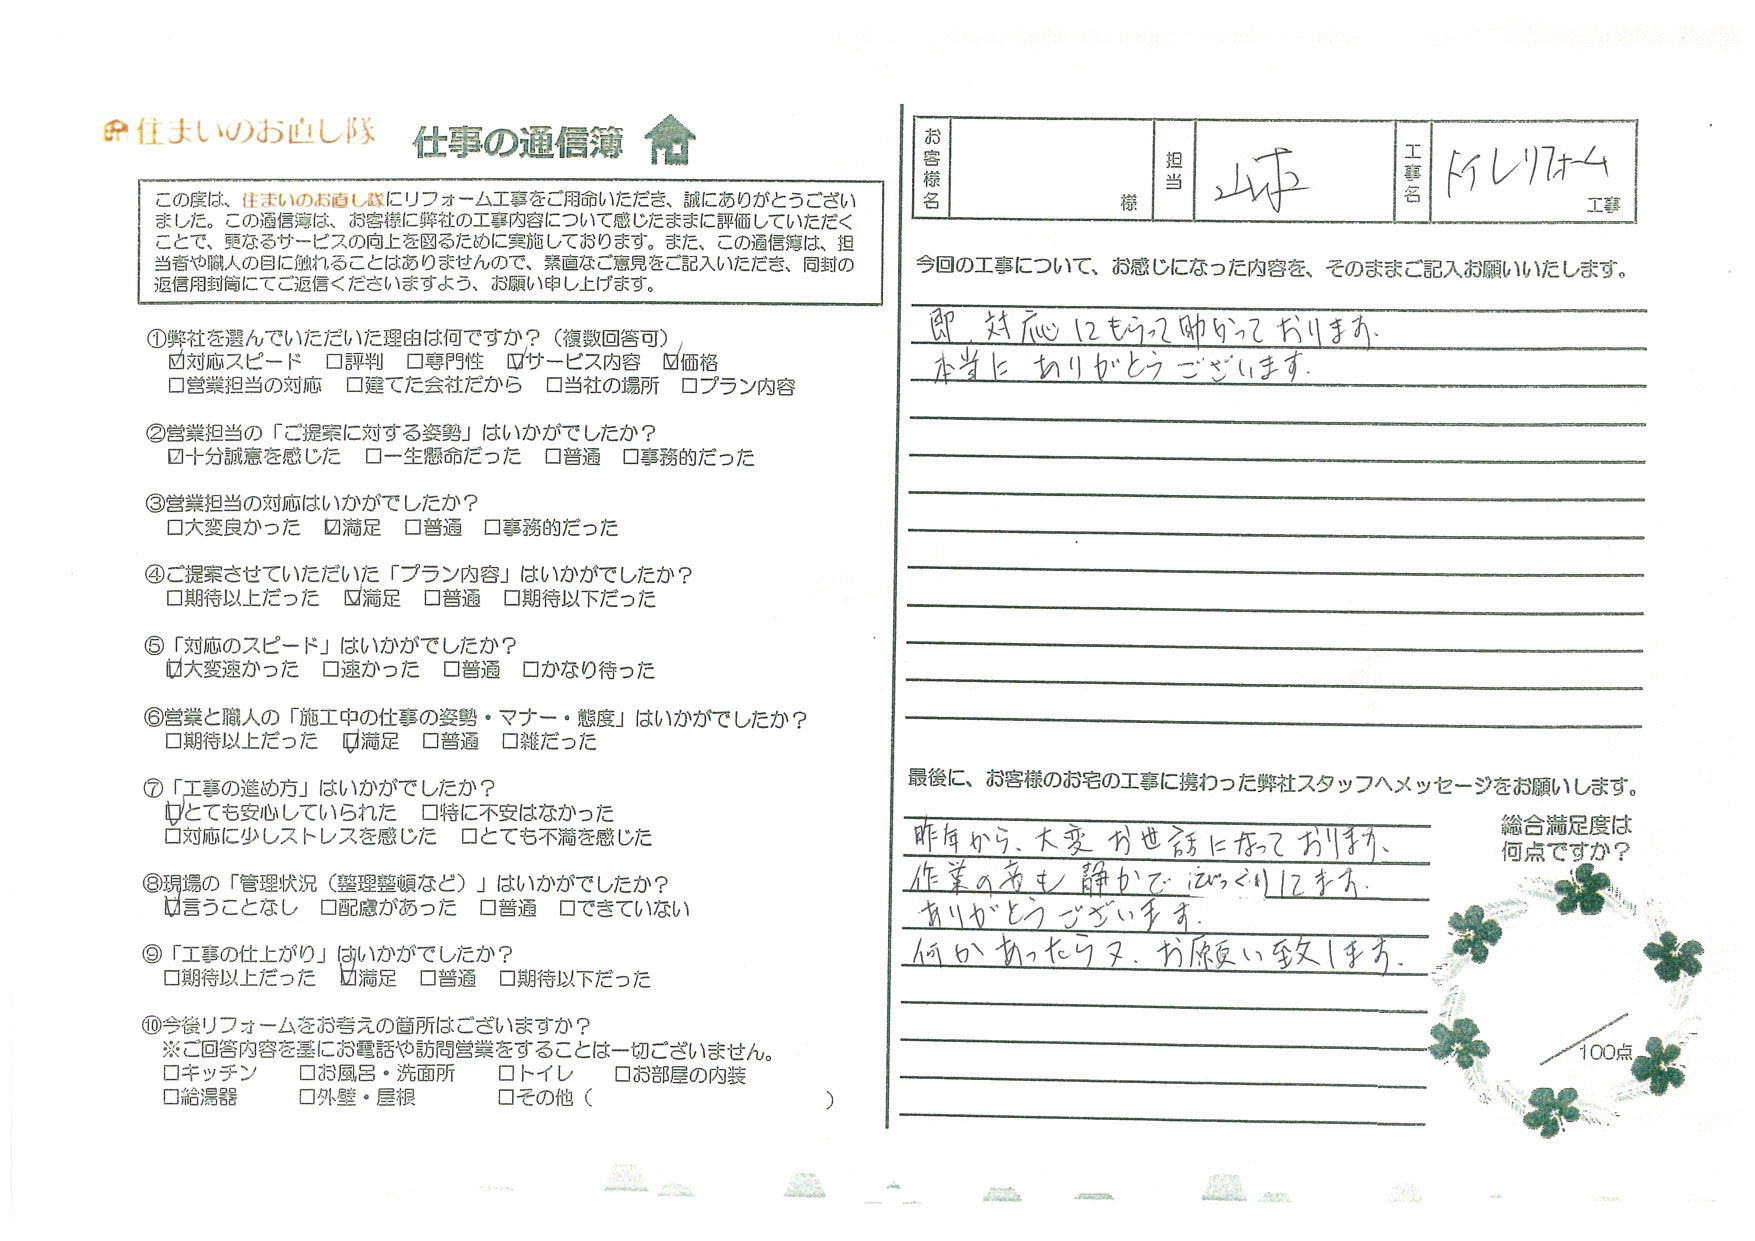 住まいのお直し隊 仕事の通信簿
この度は、住まいのお直し隊にリフォーム工事をご用命いただき、誠にありがとうござい
ました。この通信簿は、お客様に弊社の工事内容について感じたままに評価していただく
ことで、更なるサービスの向上を図るために実施しております。また、この通信簿は、担
当者や職人の目に触れることはありませんので、素直なご意見をご記入いただき、同封の
返信用封筒にてご返信くださいますよう、お願い申し上げます。
①弊社を選んでいただいた理由は何ですか？（複数回答可）
☑対応スピード □評判 □専門性 ☑サービス内容 ☑価格
□営業担当の対応 □建てた会社だから □当社の場所 □プラン内容
②営業担当の「ご提案に対する姿勢」はいかがでしたか？
☑十分誠意を感じた □一生懸命だった □普通 □事務的だった
③営業担当の対応はいかがでしたか？
□大変良かった ☑満足 □普通 □事務的だった
④ご提案させていただいた「プラン内容」はいかがでしたか？
□期待以上だった ☑満足 □普通 □期待以下だった
⑤「対応のスピード」はいかがでしたか？
☑大変速かった □速かった □普通 □かなり待った
⑥営業と職人の「施工中の仕事の姿勢・マナー・態度」はいかがでしたか？
□期待以上だった ☑満足 □普通 □雑だった
⑦「工事の進め方」はいかがでしたか？
☑とても安心していられた □特に不安はなかった
□対応に少しストレスを感じた □とても不満を感じた
⑧現場の「管理状況（整理整頓など）」はいかがでしたか？
☑言うことなし □配慮があった □普通 □できていない
⑨「工事の仕上がり」はいかがでしたか？
□期待以上だった ☑満足 □普通 □期待以下だった
⑩今後リフォームをお考えの箇所はございますか？
※ご回答内容を基にお電話や訪問営業をすることは一切ございません。
□キッチン □お風呂・洗面所 □トイレ □お部屋の内装
□給湯器 □外壁・屋根 □その他（ ）
お客様名 様 担当 工事名 トイレリフォーム 工事
今回の工事について、お感じになった内容を、そのままご記入お願いいたします。
即、対応してもらって助かっております.
本当に ありがとうございます.
最後に、お客様のお宅の工事に携わった弊社スタッフへメッセージをお願いします。
昨年から、大変お世話になっております、
作業の音も静かで びっくりしてます.
ありがとうございます.
何かあったら又、お願い致します.
総合満足度は
何点ですか？
／100点